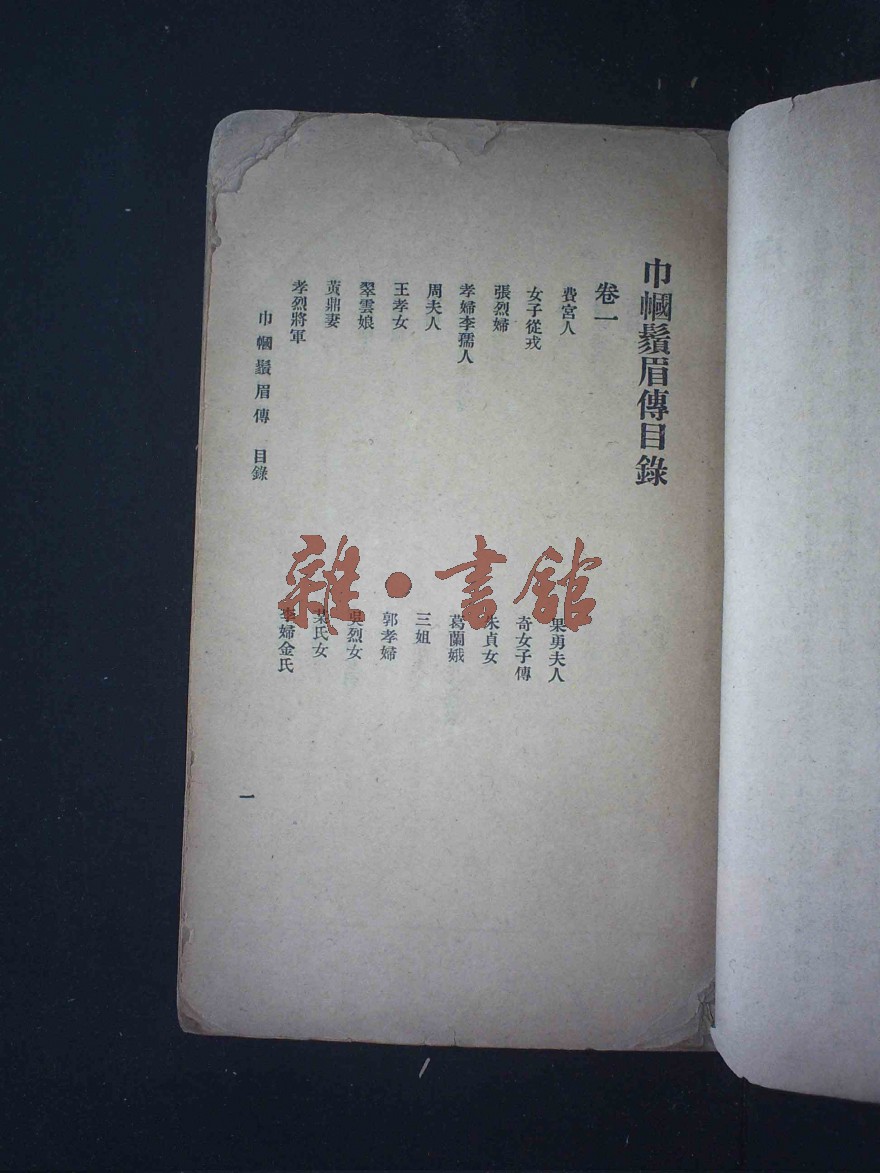 巾幗鬚眉傳目錄
卷一
費宮人
果勇夫人
女子從戎
奇女子傳
張烈婦
朱貞女
孝婦李孺人
葛蘭娥
周夫人
三姐
王孝女
郭孝婦
翠雲娘
吳烈女
黃鼎妻
葉氏女
孝烈將軍
李婦金氏
巾幗鬚眉傳 目錄
一
雜·書館